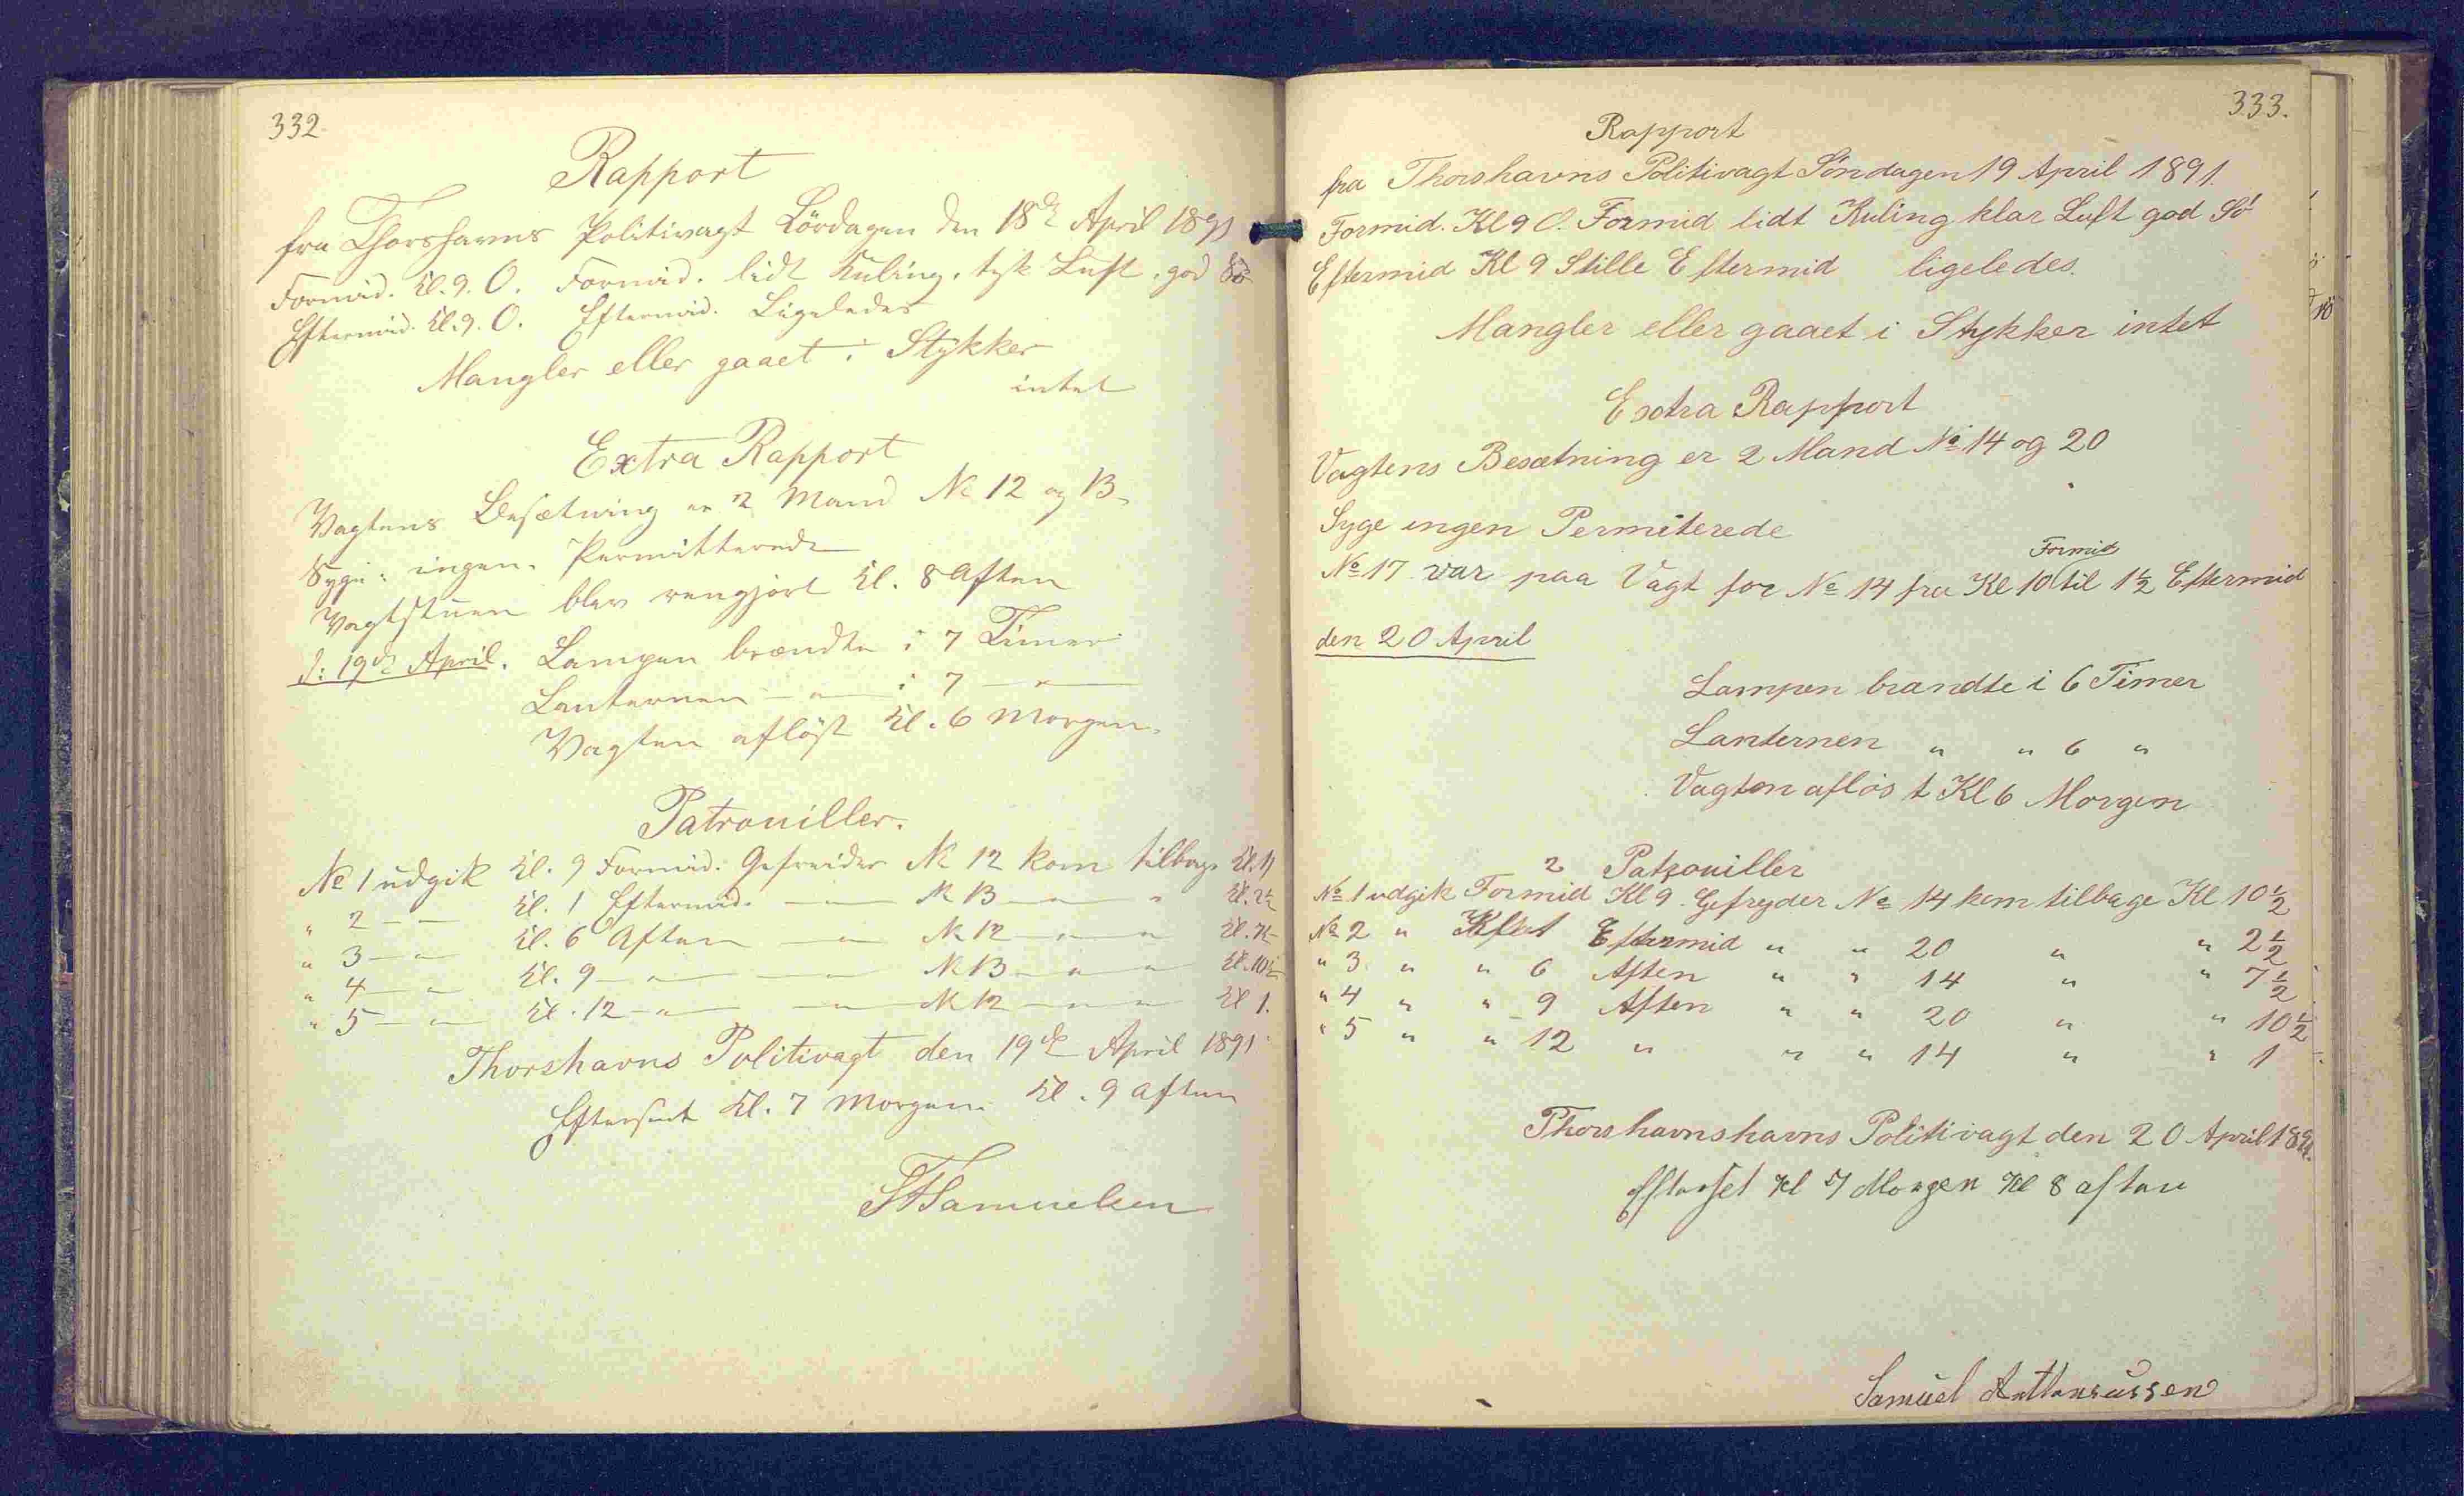 332
Rapport
fra Thorshavns Politivagt Lördagen den 18de April 1891
Formid. Kl. 9. O. Formid. lidt Kuling, tyk Luft, god Sö
Eftermid. Kl. 9. O. Eftermid. Ligeledes
Mangler eller gaaet i Stykker
intet
Extra Rapport
Vagtens Besætning er 2 Mand No 12 og 13
Syge: ingen. Permitterede
Vagtstuen blev rengjort Kl. 8 Aften
d: 19de April. Lampen brændte i 7 Timer
Lanternen — " — i 7 — " —
Vagten aflöst Kl. 6 Morgen.
Patrouiller.
No 1 udgik Kl. 9 Formid. Gefreider No 12 kom tilbage Kl. 11
" 2 — " Kl. 1 Eftermid. — " No 13 — " — " Kl. 2½
" 3 — " Kl. 6 Aften — " No 12 — " — " Kl. 7½
" 4 — " Kl. 9 — " — " No 13 — " — " Kl. 10½
" 5 — " Kl. 12 — " — " No 12 — " — " Kl 1.
Thorshavns Politivagt den 19de April 1891
Efterseet Kl. 7 Morgen. Kl. 9 Aften
333.
Rapport
fra Thorshavns Politivagt Söndagen 19 April 1891.
Formid. Kl 9 O. Formid lidt Kuling klar Luft god Sö
Eftermid Kl 9 Stille Eftermid ligeledes.
Mangler eller gaaet i Stykker intet
Extra Rapport
Vagtens Besætning er 2 Mand No 14 og 20
Syge ingen Permiterede
Formid
No 17 var paa Vagt for No 14 fra Kl 10 til 1½ Eftermid
den 20 April
Lampen brandte i 6 Timer
Lanternen " " 6 "
Vagten aflöst Kl 6 Morgen
2 Patrouiller
No 1 udgik Formid Kl 9. Gefryder No 14 kom tilbage Kl 10½
No 2 " Eftermid " " 20 " " 2½
" 3 " " 6 Aften " " 14 " " 7½
" 4 " " 9 Aften " " 20 " " 10½
" 5 " " 12 " " " 14 " " 1
Thorshavnshavns Politivagt den 20 April 1891.
Efterset Kl 7 Morgen Kl 8 aften
Samuel